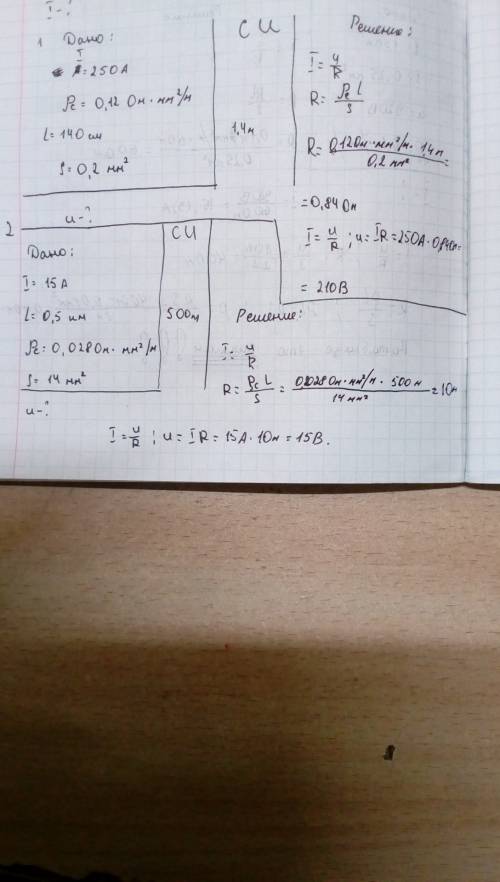 I-?
1 Дано:
I = 250 А
ρc = 0,12 Ом · мм²/м
L = 140 см
S = 0,2 мм²
u-?
СИ
1,4м
Решение:
I = u/R
R = ρc L/S
R = 0,12Ом·мм²/м · 1,4м/0,2 мм² =
= 0,84Ом
I = u/R ; u = IR = 250А · 0,84Ом =
= 210В
2
Дано:
I = 15А
L = 0,5 км
ρc = 0,028Ом · мм²/м
S = 14 мм²
u-?
СИ
500м
Решение:
I = u/R
R = ρc L/S = 0,028Ом·мм²/м · 500м/14 мм² = 1Ом
I = u/R ; u = IR = 15А · 1Ом = 15В.